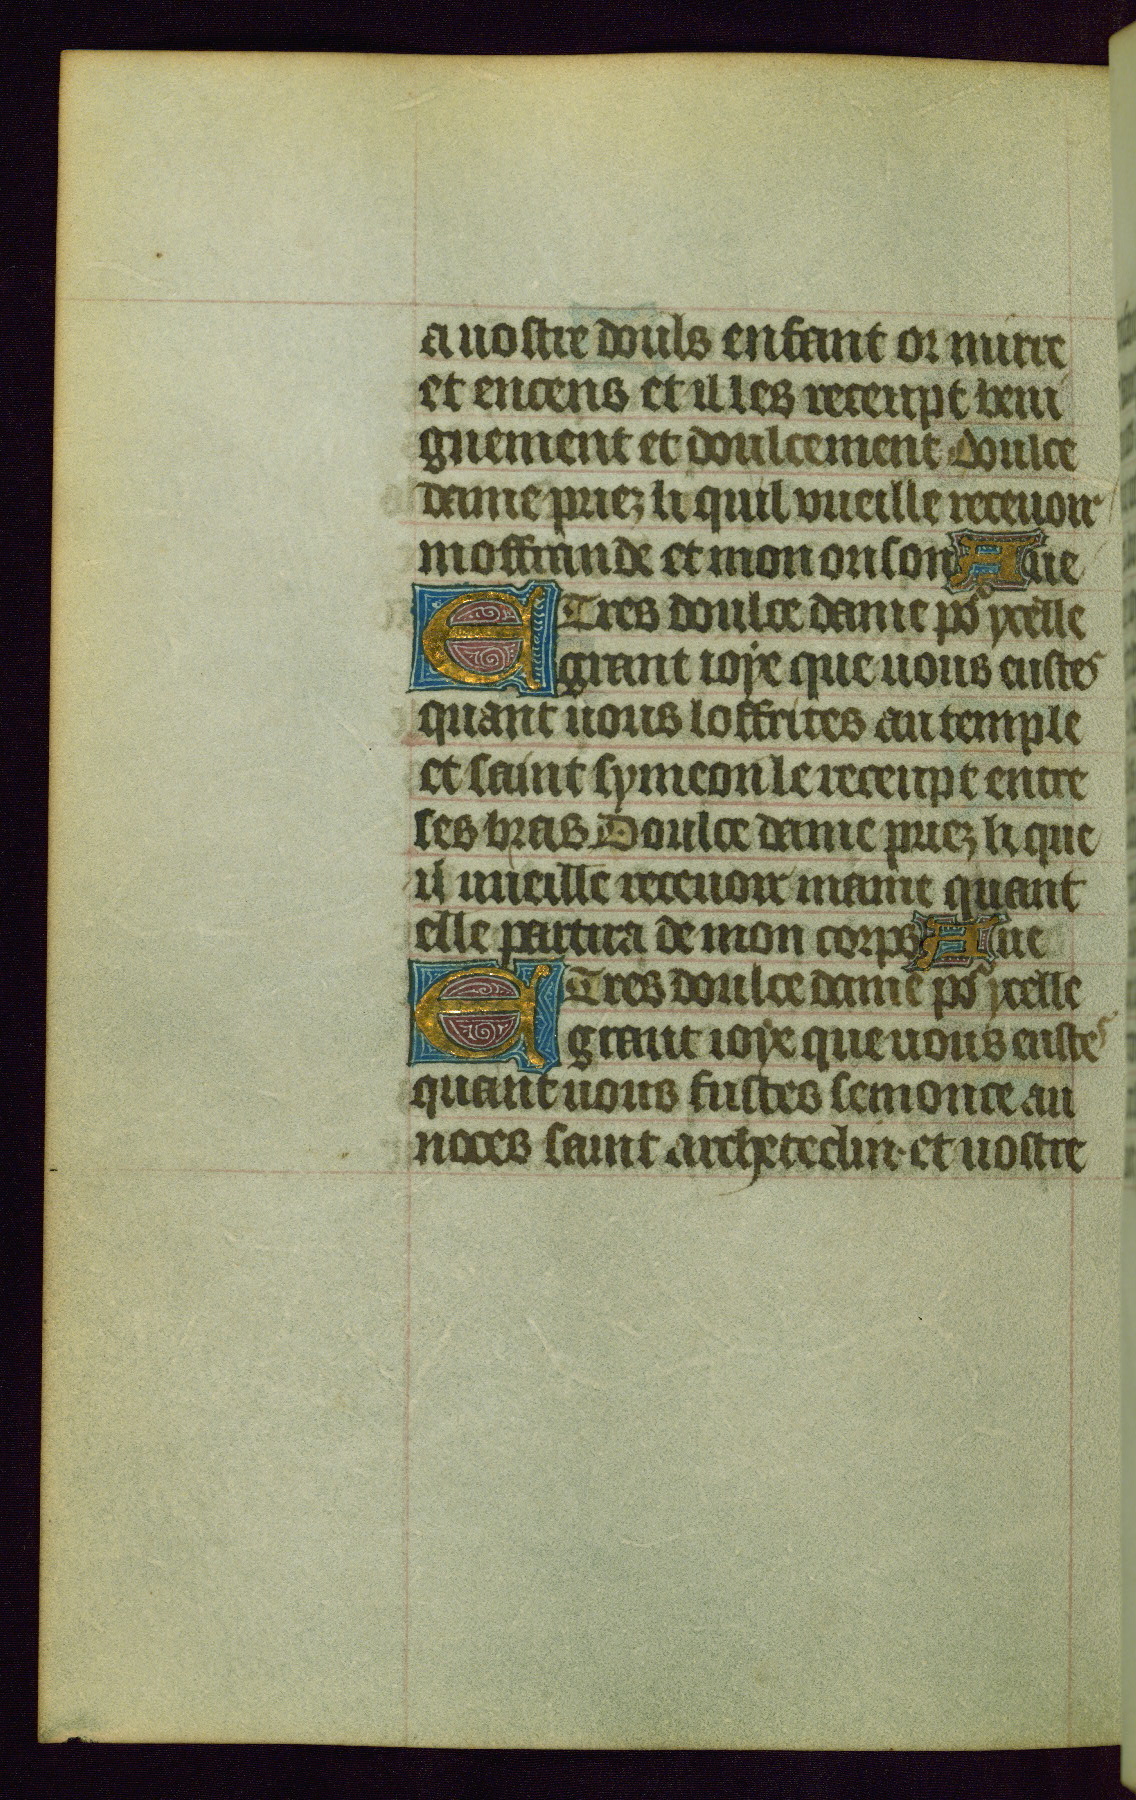 a uostre douls enfant or mirre
et encens et il les receupt beni
gnement et doulcement Doulce
dame priez li quil vueille receuoir
moffrande et mon orison Aue
E Tres doulce dame po ycelle
grant ioye que uous eustes
quant uous loffrites au temple
et saint symeon le receupt entre
ses bras Doulce dame priez li que
il uueille receuoir mame quant
elle partira de mon corps Aue
E Tres doulce dame po ycelle
grant ioye que uous eustes
quant uous fustes semonce au
noces saint archeteclin· et uostre